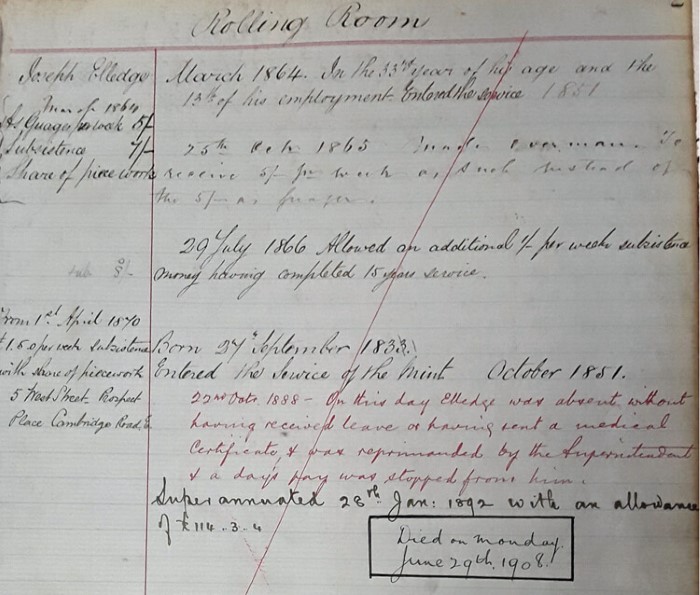 Rolling Room
Joseph Elledge
March 1864
As Guager per week 5/-
Subsistence 7/-
Share of piecework
March 1864. In the 33rd year of his age and the
13th of his employment. Entered the service 1851
25th 1865 Made overman. To
receive 5/- per week as such instead of
the 5/- as
29 July 1866 Allowed an additional 1/- per week subsistence
money having completed 15 years service.
8/-
From 1st April 1870
£1.6.0 per week subsistence
with share of piecework
5 West Street Prospect
Place Cambridge Road, E.
Born 27th September 1833.
Entered the Service of the Mint October 1851.
22nd Octr. 1888 – On this day Elledge was absent without
having received leave or having sent a medical
Certificate, & was reprimanded by the Superintendent
& a day's pay was stopped from him.
Superannuated 28th Jan: 1892 with an allowance
of £114..3..4
Died on Monday
June 29th. 1908.